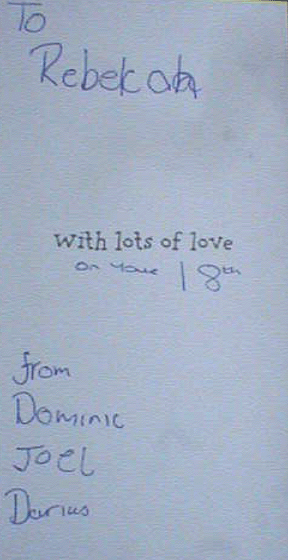 To
Rebekah
with lots of love
on your 18th
from
Dominic
Joel
Darius